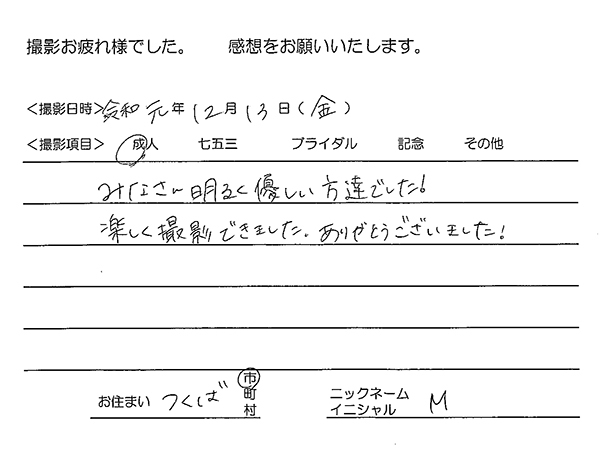 撮影お疲れ様でした。 感想をお願いいたします。
<撮影日時> 令和 元年 12月 13日(金)
<撮影項目> 成人 七五三 ブライダル 記念 その他
みなさん明るく優しい方達でした!
楽しく撮影できました。ありがとうございました!
お住まい つくば 市町村 ニックネーム イニシャル M